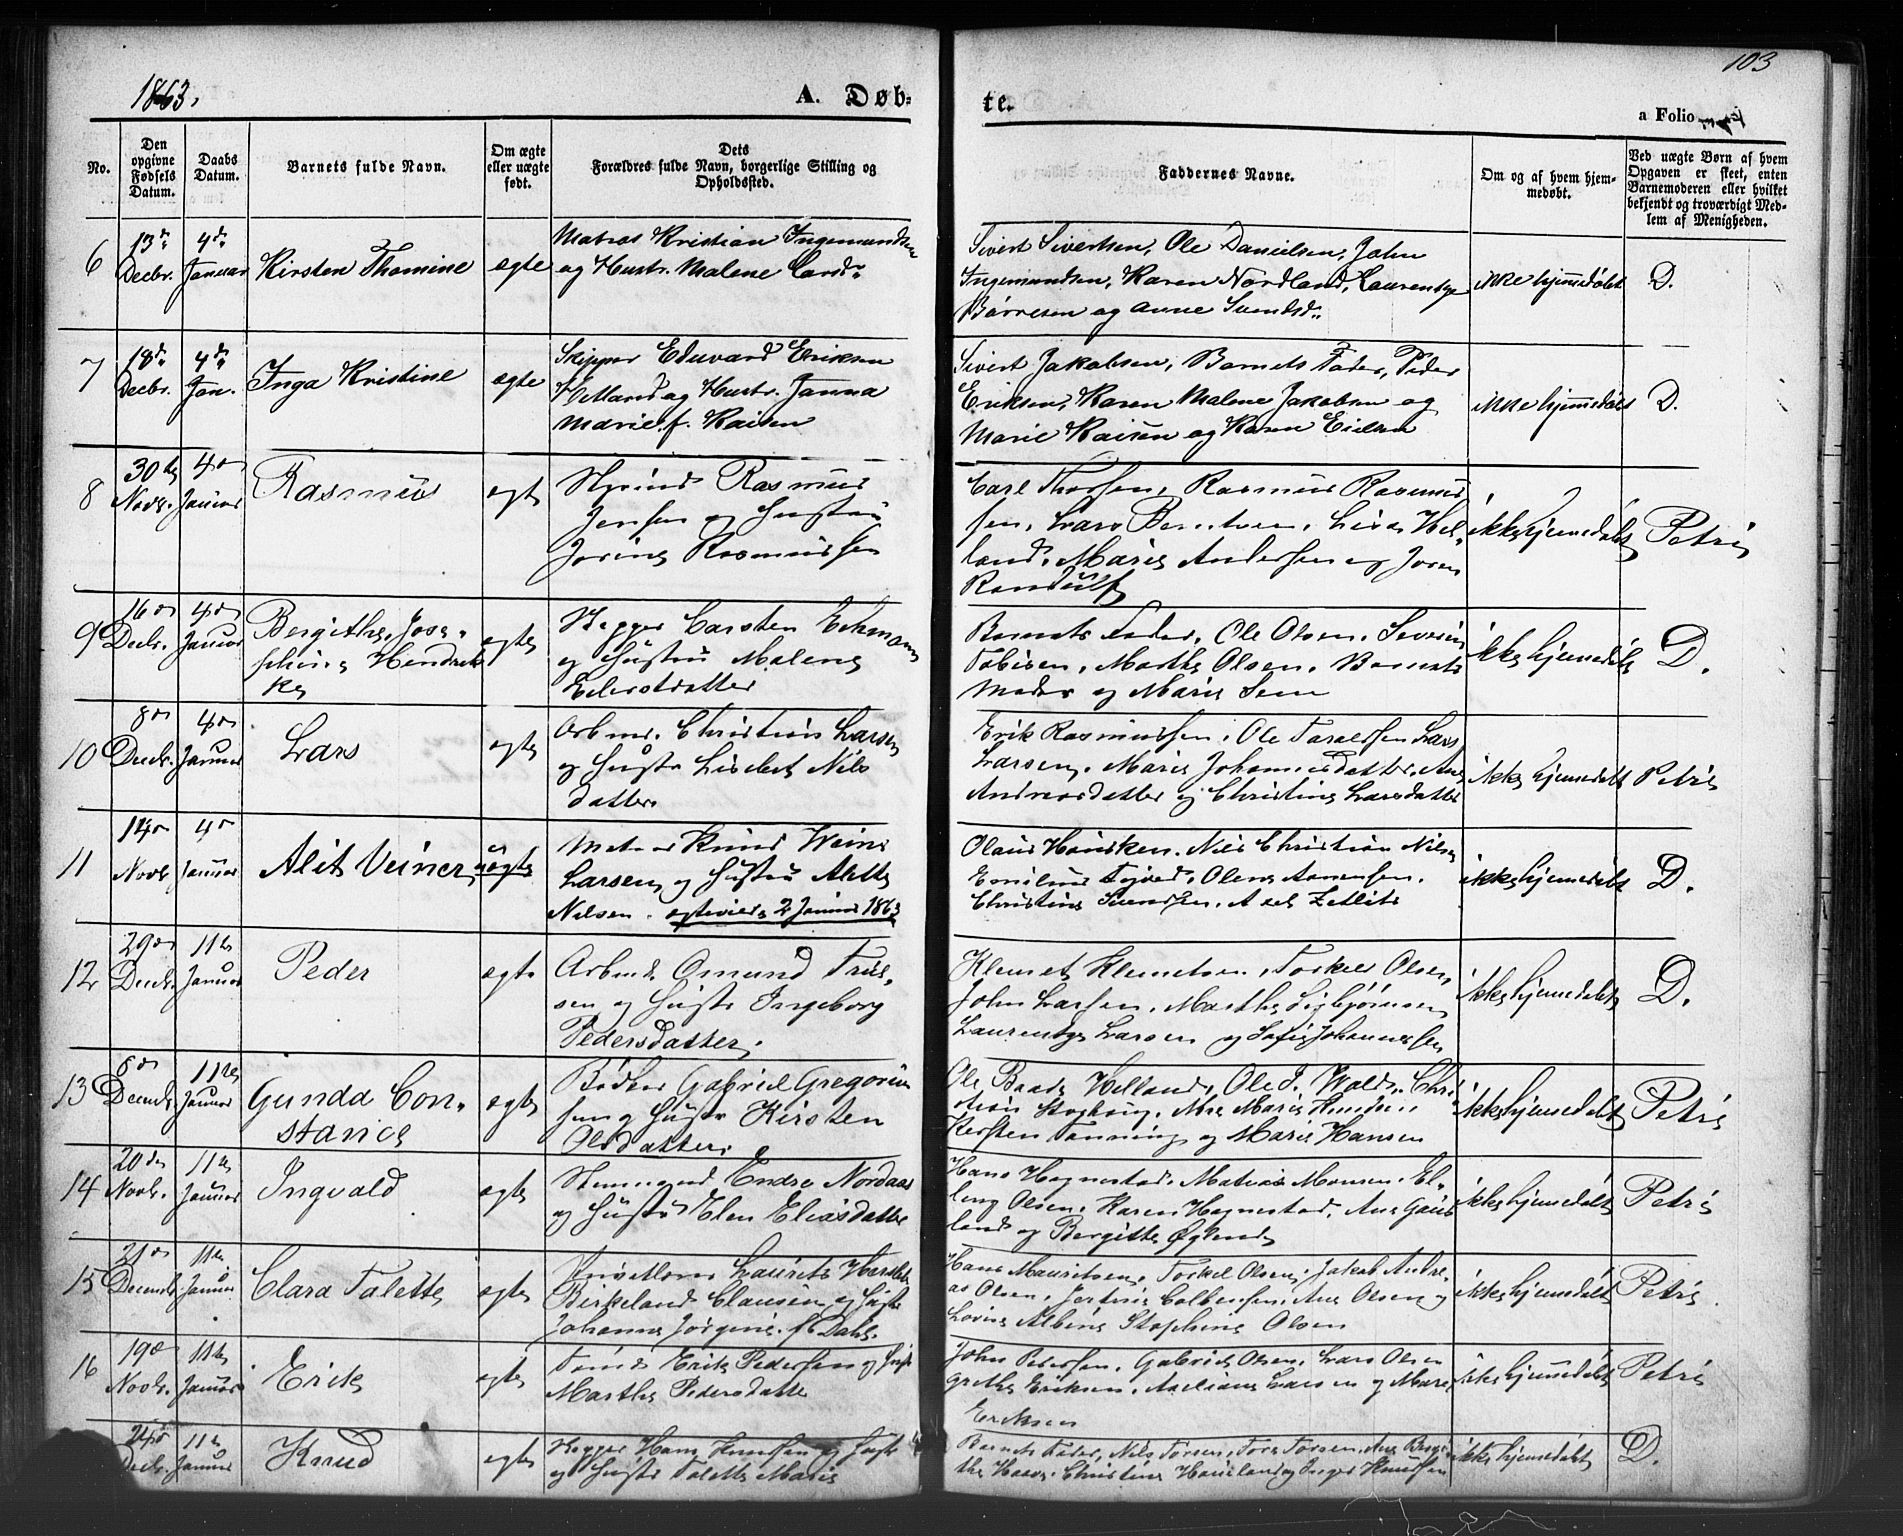 1863.
A. Døb-
te.
103
a Folio
No.
Den opgivne Fødsels Datum.
Daabs Datum.
Barnets fulde Navn.
Om ægte eller uægte født.
Dets Forældres fulde Navn, borgerlige Stilling og Opholdssted.
Faddernes Navne.
Om og af hvem hjem-
medøbt.
Ved uægte Børn af hvem
Opgaven er skeet, enten
Barnemoderen eller hvilket
bekjendt og troværdigt Med-
lem af Menigheden.
6
13de Decbr.
4de Januar
Kirsten Thomine
ægte
Matros Kristian Ingemundsen
og Hustr. Malene Larsd.
Sivert Sivertsen, Ole Danielsen, John
Ingemundsen, Karen Nordland, Laurentze
Børresen og Anne Svendsd.
ikke hjemmedøbt
D.
7
18de Decbr.
4de Jan.
Inga Kristine
ægte
Skipper Eduvard Eriksen
Hetland og Hustr. Janna
Marie f. Kaisen
Sivert Jakobsen, Barnets Fader, Peder
Eriksen, Karen Malene Jakobsen og
Marie Kaisen og Karen Eielsen
ikke hjemmedøbt
D.
8
30te Novbr.
4de Januar
Rasmus
ægte
Rasmus
Jensen og Hustru
Jorine Rasmussen
Carl Thorsen, Rasmus Rasmus-
sen, Lars Berntsen, Lisa Hel-
land, Marie Andersen og Joren
Randulf
ikke hjemmedøbt
Petri
9
16de Decbr.
4de Januar
Bergithe Jose-
phine Hendrik-
ke
ægte
Carsten Eckmann
og Hustru Malene
Eilertsdatter
Barnets Fader, Ole Olsen, Severin
Tobisen, Marthe Olsen, Barnets
Moder og Marie Sem
ikke hjemmedøbt
D.
10
8de Decbr.
4de Januar
Lars
ægte
Arbmd. Christian Larsen
og Hustr. Lisebet Nils
datter
Erik Rasmussen, Ole Taraldsen, Lars
Larsen, Marie Johannesdatter, Ane
Andreasdatter og Christine Larsdatter
ikke hjemmedøbt
Petri
11
14de Novbr.
4de Januar
Alit Veiner
uægte
Matros Knud Weine
Larsen og Hustru Alette
Nilsen. ægteviet 2 Januar 1863
Olaus Hausken, Nils Christian Nilsen
Emilius, Olene Aanensen,
Christine Svendsen, Axel Zetlitz
ikke hjemmedøbt
D.
12
29de Decbr.
11te Januar
Peder
ægte
Arbmd. Omund Trul-
sen og Hustr Ingeborg
Pedersdatter
Klemet Klemetsen, Torkel Olsen,
John Larsen, Marthe Sigbjørnsen
Laurentze Larsen og Sofie Johannessen
ikke hjemmedøbt
D.
13
8de Decmb.
11te Januar
Gunda Con-
stance
ægte
Bødker Gabriel Gregorius
sen og Hustr Kirsten
Olsdatter
Ole Helland, Ole J. Wold, Chri-
stian, Ane Marie Knudsen
Kirsten Tanning og Marie Hansen
ikke hjemmedøbt
Petri
14
20de Novbr.
11te Januar
Ingvald
ægte
Endre Nordaas
og Hustru Elen Eliasdatter
Hans Hognestad, Matias Monsen, El-
ling Olsen, Karen Hognestad, Ane Gaus
land og Bergitte Øglend
ikke hjemmedøbt
Petri
15
21de Decmb.
11te Januar
Clara Talette
ægte
Laurits Hersleb
Berkeland Clausen og Hustr
Johanne Jørgine f. Dahl.
Hans Mauritsen, Torkel Olsen, Jakob Andre-
as Olsen, Colbensen, Ane Olsen og
Lovise Albine Stephine Olsen
ikke hjemmedøbt
Petri
16
19de Novbr.
11te Januar
Erik
ægte
Erik Pedersen og Hustr
Marthe Pedersdatter
John Pedersen, Gabriel Olsen, Lars Olsen
Grethe Eriksen, Larsen og Marie
Eriksen
ikke hjemmedøbt
Petri
24de Decbr.
11te Januar
Knud
ægte
Hans Knudsen
og Hustr Talette Marie
Barnets Fader, Nils Torsen, Tore Torsen, Ane Berg-
the Hans, Christine Haueland og Inger Knudsen
ikke hjemmedøbt
D.